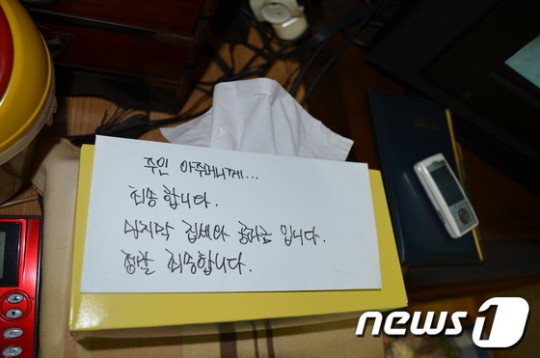 주인 아주머니께...
죄송합니다.
마지막 집세와 공과금 입니다.
정말 죄송합니다.
news1